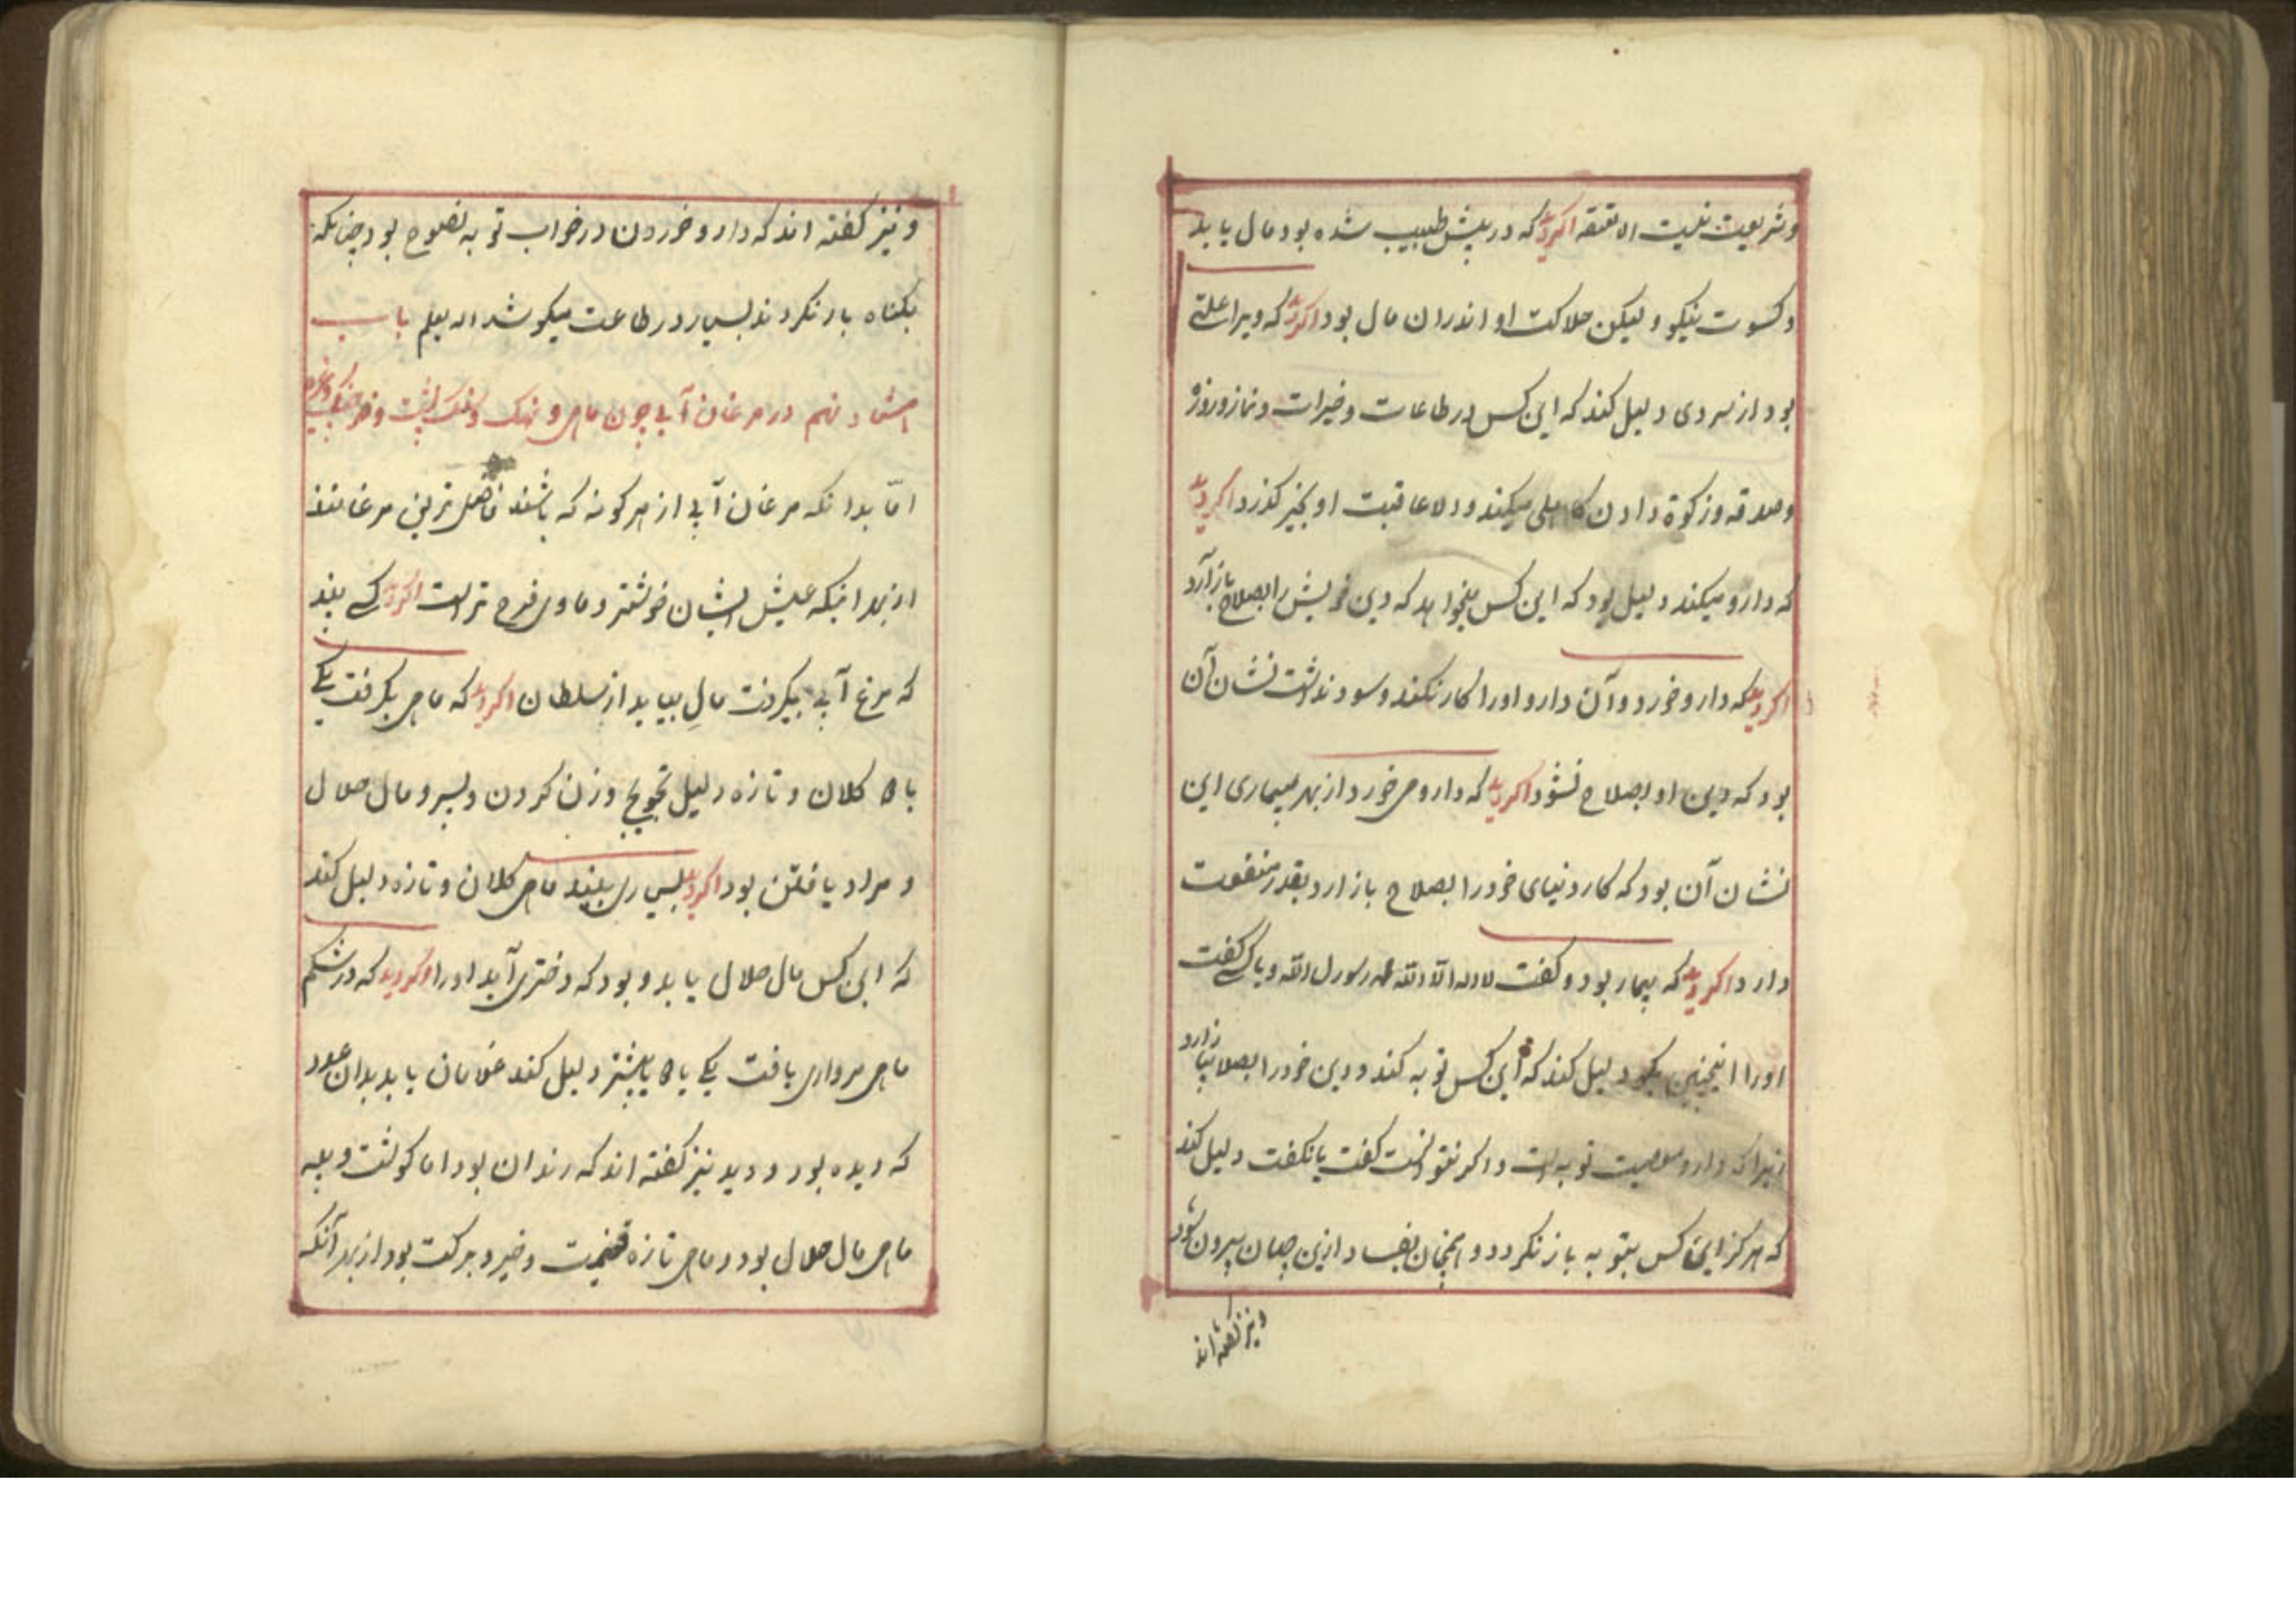 وشریعت نیست الا تفقه اکر دید که در پیش طبیب شده بود مال یابد
وکسوت نیکو ولیکن هلاکت او اندران مال بود اکر دید که ویرا علتی
بود از سردی دلیل کند که این کس در طاعات وخیرات ونماز وروزه
وصدقه وزکوة دادن کاهلی میکند ودلا عاقبت او بخیر کذرد اکر دید
که دارو میکند دلیل بود که این کس میخواهد که دین خویش را بصلاح باز آرد
اکر دید که دارو خورد وآن دارو اورا کار نکند وسود نداشت نشان آن
بود که دین او بصلاح نشود اکر دید که داروی خورد از بهر بیماری این
نشان آن بود که کار دنیای خود را بصلاح باز ارد بقدر منفعت
دارد اکر دید که بیمار بود وکفت لا اله الا الله محمد رسول الله ویا کسی کفت
اورا اینچنین بکو دلیل کند که این کس توبه کند ودین خود را بصلا
زیرا که دارو معصیت توبه است واکر نتوانست کفت یا نکفت دلیل کند
که هرکز این کس بتوبه باز نکردد وهمچنان بفساد ازین جهان بیرون شود
ونیز کفته اند
ونیز کفته اند که دارو خوردن در خواب توبه نصوح بود چنانکه
بکناه باز نکردند بسیار در طاعت میکوشد الله یعلم باب
هشتاد نهم در مرغان آبی چون ماهی ونهنک وسنک پشت وخرچنک وغیره
امّا بدانکه مرغان آبی از هر کونه که باشند فاضل ترین مرغانند
از بهر اینکه عیش ایشان خوشتر وماوی فرح تر است اکر دید کسی بیند
که مرغ آبی بیکرفت مال بیابد از سلطان اکر دید که ماهی بکرفت یکی
یا دو کلان وتازه دلیل تجویج وزن کردن وپسر ومال حلال
ومراد یافتن بود اکر دید بسیاری بیند ماهی کلان وتازه دلیل کند
که این کس مال حلال یابد وبود که دختری آید اورا اکر دید که در شکم
ماهی مرواری یافت یکی یا دو یا بیشتر دلیل کند غلامان یابد بدان عدد
که دیده بود ودید نیز کفته اند که رندان بود اما کوشت وپیه
ماهی مال حلال بود وماهی تازه غنیمت وخیر وبرکت بود از بهر آنکه